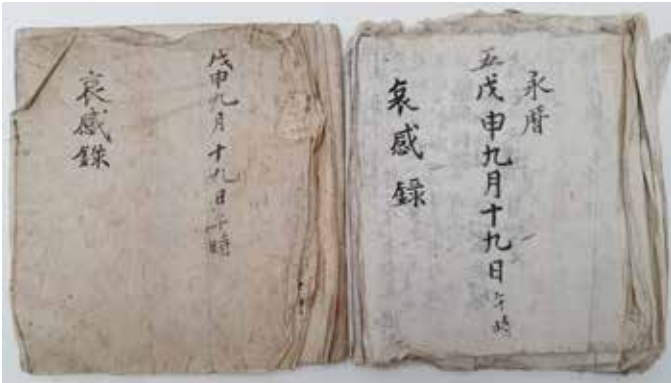 戊申九月十九日午時
哀感錄
永曆
五戊申九月十九日午時
哀感錄